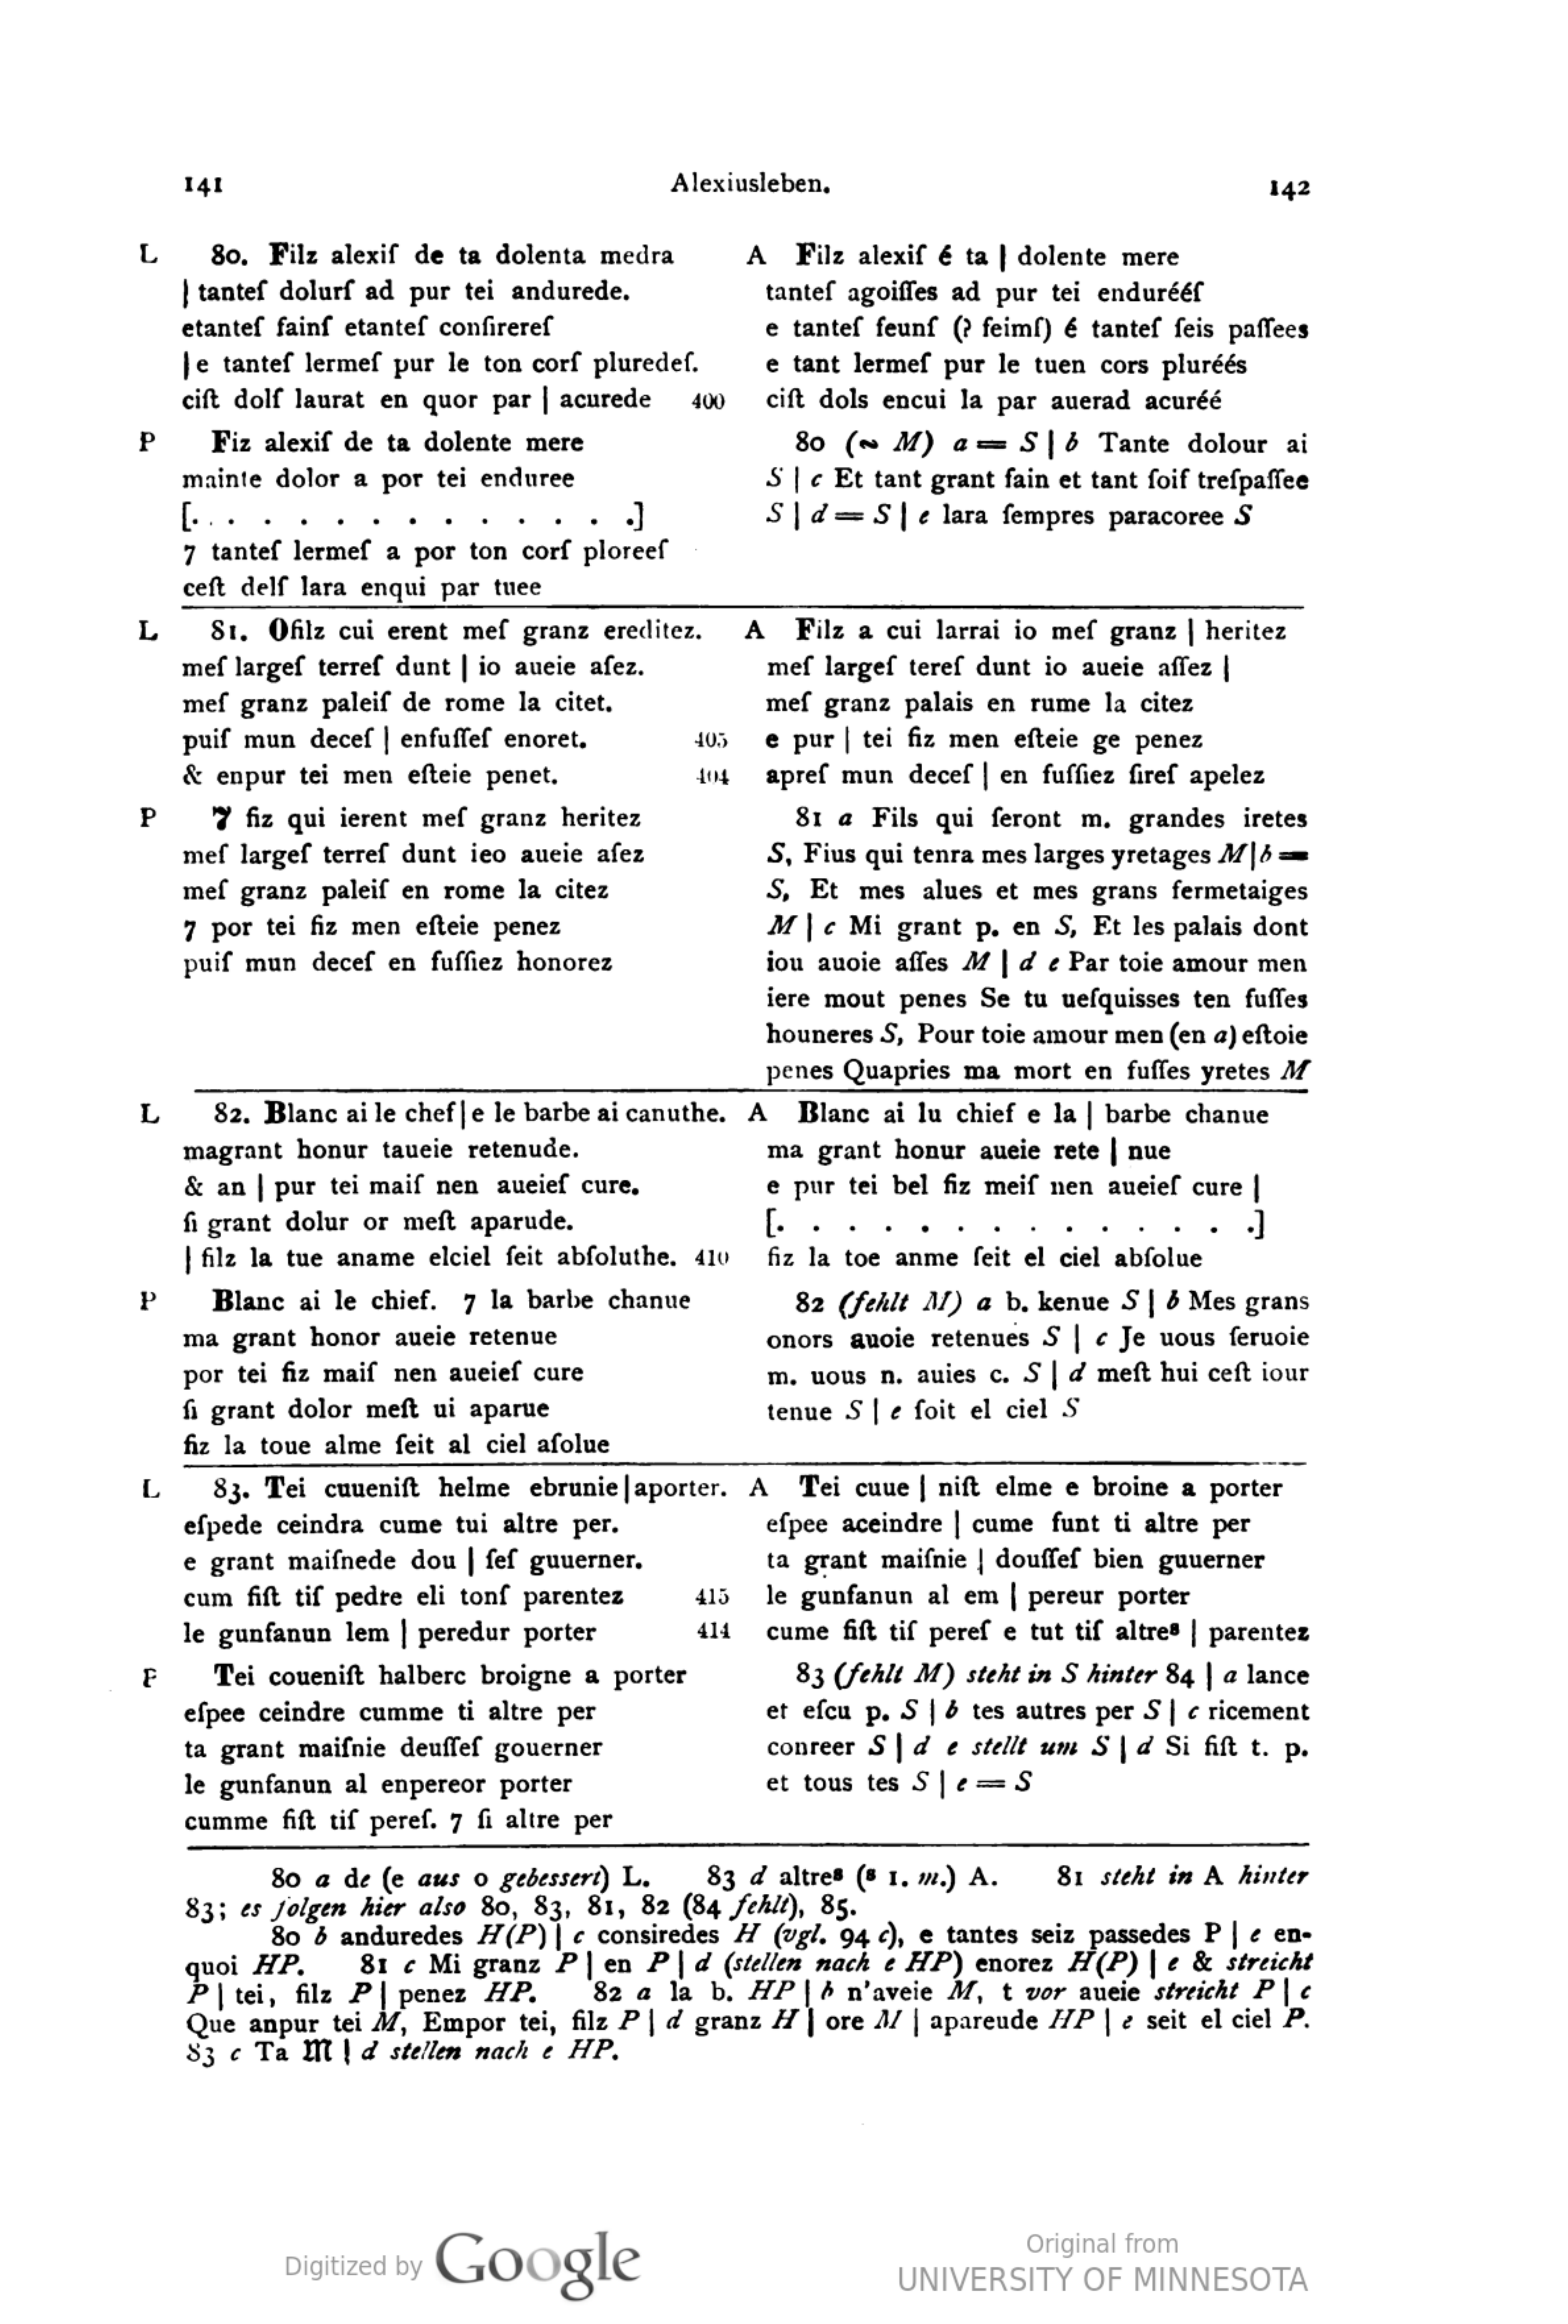 141 Alexiusleben. 142
L 80. Filz alexiſ de ta dolenta medra
| tanteſ dolurſ ad pur tei andurede.
etanteſ fainſ etanteſ conſirereſ
| e tanteſ lermeſ pur le ton corſ pluredeſ.
ciſt dolſ laurat en quor par | acurede 400
A Filz alexiſ é ta | dolente mere
tanteſ agoiſſes ad pur tei endurééſ
e tanteſ feunſ (? feimſ) é tanteſ ſeis paſſees
e tant lermeſ pur le tuen cors pluréés
ciſt dols encui la par auerad acuréé
P Fiz alexiſ de ta dolente mere
mainte dolor a por tei enduree
[. . . . . . . . . . . . . .]
7 tanteſ lermeſ a por ton corſ ploreeſ
ceſt delſ lara enqui par tuee
80 (∾ M) a = S | b Tante dolour ai
S | c Et tant grant fain et tant ſoif treſpaſſee
S | d = S | e lara ſempres paracoree S
L 81. Ofilz cui erent meſ granz ereditez.
meſ largeſ terreſ dunt | io aueie aſez.
meſ granz paleiſ de rome la citet.
puiſ mun deceſ | enfuſſeſ enoret. 405
& enpur tei men eſteie penet. 404
A Filz a cui larrai io meſ granz | heritez
meſ largeſ tereſ dunt io aueie aſſez |
meſ granz palais en rume la citez
e pur | tei fiz men eſteie ge penez
apreſ mun deceſ | en fuſſiez ſireſ apelez
P 7 fiz qui ierent meſ granz heritez
meſ largeſ terreſ dunt ieo aueie aſez
meſ granz paleiſ en rome la citez
7 por tei fiz men eſteie penez
puiſ mun deceſ en fuſſiez honorez
81 a Fils qui ſeront m. grandes iretes
S, Fius qui tenra mes larges yretages M | b =
S, Et mes alues et mes grans fermetaiges
M | c Mi grant p. en S, Et les palais dont
iou auoie aſſes M | d e Par toie amour men
iere mout penes Se tu ueſquisses ten fuſſes
houneres S, Pour toie amour men (en a) eſtoie
penes Quapries ma mort en fuſſes yretes M
L 82. Blanc ai le chef | e le barbe ai canuthe.
magrant honur taueie retenude.
& an | pur tei maiſ nen aueieſ cure.
ſi grant dolur or meſt aparude.
| filz la tue aname elciel ſeit abſoluthe. 410
A Blanc ai lu chief e la | barbe chanue
ma grant honur aueie rete | nue
e pur tei bel fiz meiſ nen aueieſ cure |
[. . . . . . . . . . . . . .]
fiz la toe anme ſeit el ciel abſolue
P Blanc ai le chief. 7 la barbe chanue
ma grant honor aueie retenue
por tei fiz maiſ nen aueieſ cure
ſi grant dolor meſt ui aparue
fiz la toue alme ſeit al ciel aſolue
82 (fehlt M) a b. kenue S | b Mes grans
onors auoie retenues S | c Je uous ſeruoie
m. uous n. auies c. S | d meſt hui ceſt iour
tenue S | e ſoit el ciel S
L 83. Tei cuueniſt helme ebrunie | aporter.
eſpede ceindra cume tui altre per.
e grant maiſnede dou | ſeſ guuerner.
cum fiſt tiſ pedre eli tonſ parentez 415
le gunfanun lem | peredur porter 414
A Tei cuue | niſt elme e broine a porter
eſpee aceindre | cume funt ti altre per
ta grant maiſnie | douſſeſ bien guuerner
le gunfanun al em | pereur porter
cume fiſt tiſ pereſ e tut tiſ altreˢ | parentez
P Tei coueniſt halberc broigne a porter
eſpee ceindre cumme ti altre per
ta grant maiſnie deuſſeſ gouerner
le gunfanun al enpereor porter
cumme fiſt tiſ pereſ. 7 ſi altre per
83 (fehlt M) steht in S hinter 84 | a lance
et eſcu p. S | b tes autres per S | c ricement
conreer S | d e stellt um S | d Si fiſt t. p.
et tous tes S | e = S
80 a de (e aus o gebessert) L. 83 d altreˢ (ˢ 1. m.) A. 81 steht in A hinter
83; es folgen hier also 80, 83, 81, 82 (84 fehlt), 85.
80 b anduredes H(P) | c consiredes H (vgl. 94 c), e tantes seiz passedes P | e en-
quoi HP. 81 c Mi granz P | en P | d (stellen nach e HP) enorez H(P) | e & streicht
P | tei, filz P | penez HP. 82 a la b. HP | b n'aveie M, t vor aueie streicht P | c
Que anpur tei M, Empor tei, filz P | d granz H | ore M | apareude HP | e seit el ciel P.
83 c Ta 𝔐 | d stellen nach e HP.
Digitized by Google
Original from
UNIVERSITY OF MINNESOTA